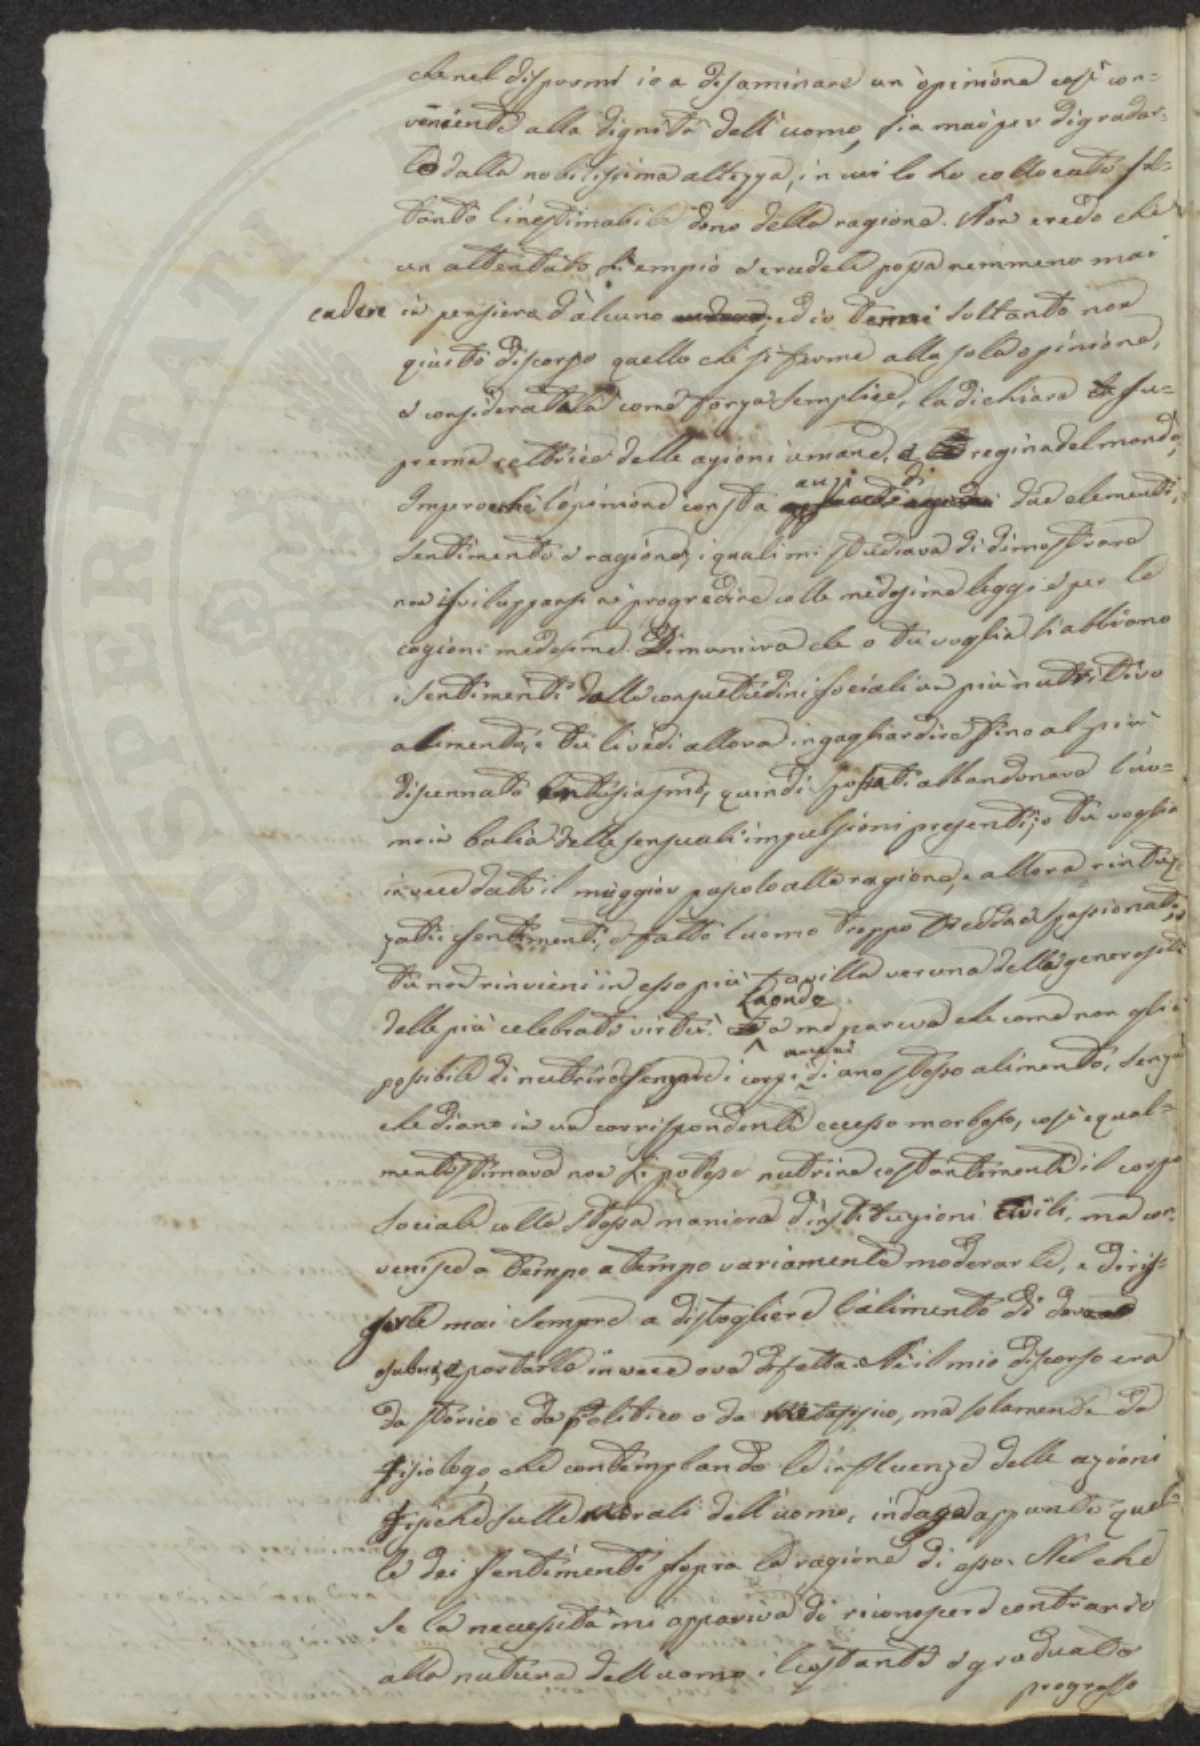 che nel dispormi io a disaminare un'opinione così con=
veniente alla dignità dell'uomo, sia mai per digradar=
lo dalla nobilissima altezza, in cui lo ha collocato sol=
tanto l'inestimabile dono della ragione. Non credo che
un attentato sì empio e crudele possa nemmeno mai
cadere in pensiero d'alcuno ed io tenni soltanto non
giusto discorso quello che si ferma alla sola opinione,
e consideratala come forza semplice, la dichiara su=
prema rettrice delle azioni umane, e regina del mondo;
Imperocchè l'opinione consta anzi di due elementi,
sentimento e ragione, i quali mi studiava di dimostrare
non isvilupparsi nè progredire colle medesime leggi e per le
cagioni medesime. Di maniera che o tu voglia s'abbiano
i sentimenti dalle consuetudini sociali un più nutritivo
alimento, e tu li vedi allora ingagliardire fino al più
dissennato entusiasmo, quindi spossati abbandonare l'uo=
mo in balia delle sensuali impulsioni presenti; o tu voglia
invece dato il maggior pascolo alla ragione, e allora rintuz=
zati i sentimenti, e fatto l'uomo troppo freddo e spassionato,
tu non rinvieni in esso più favilla veruna della generosità
delle più celebrate virtù. Laonde a me pareva che come non gli è
possibile di nutrire sempre i corpi umani di uno stesso alimento, senza
che diano in un corrispondente eccesso morboso, così equal=
mente stimava non si potesse nutrire costantemente il corpo
sociale colla stessa maniera d'instituzioni civili, ma con=
venisse a tempo a tempo variamente moderarle, e diriz=
zarle mai sempre a distogliere l'alimento di dove
esubera, e portarlo invece ove difetta. Nè il mio discorso era
da storico e da politico o da metafisico, ma solamente da
fisiologo, che contemplando le influenze delle azioni
fisiche sulle morali dell'uomo, indaga appunto quel=
le dei sentimenti sopra la ragione di esso. Nel che
se la necessità mi appariva di riconoscere contrario
alla natura dell'uomo il costante e graduato
progresso